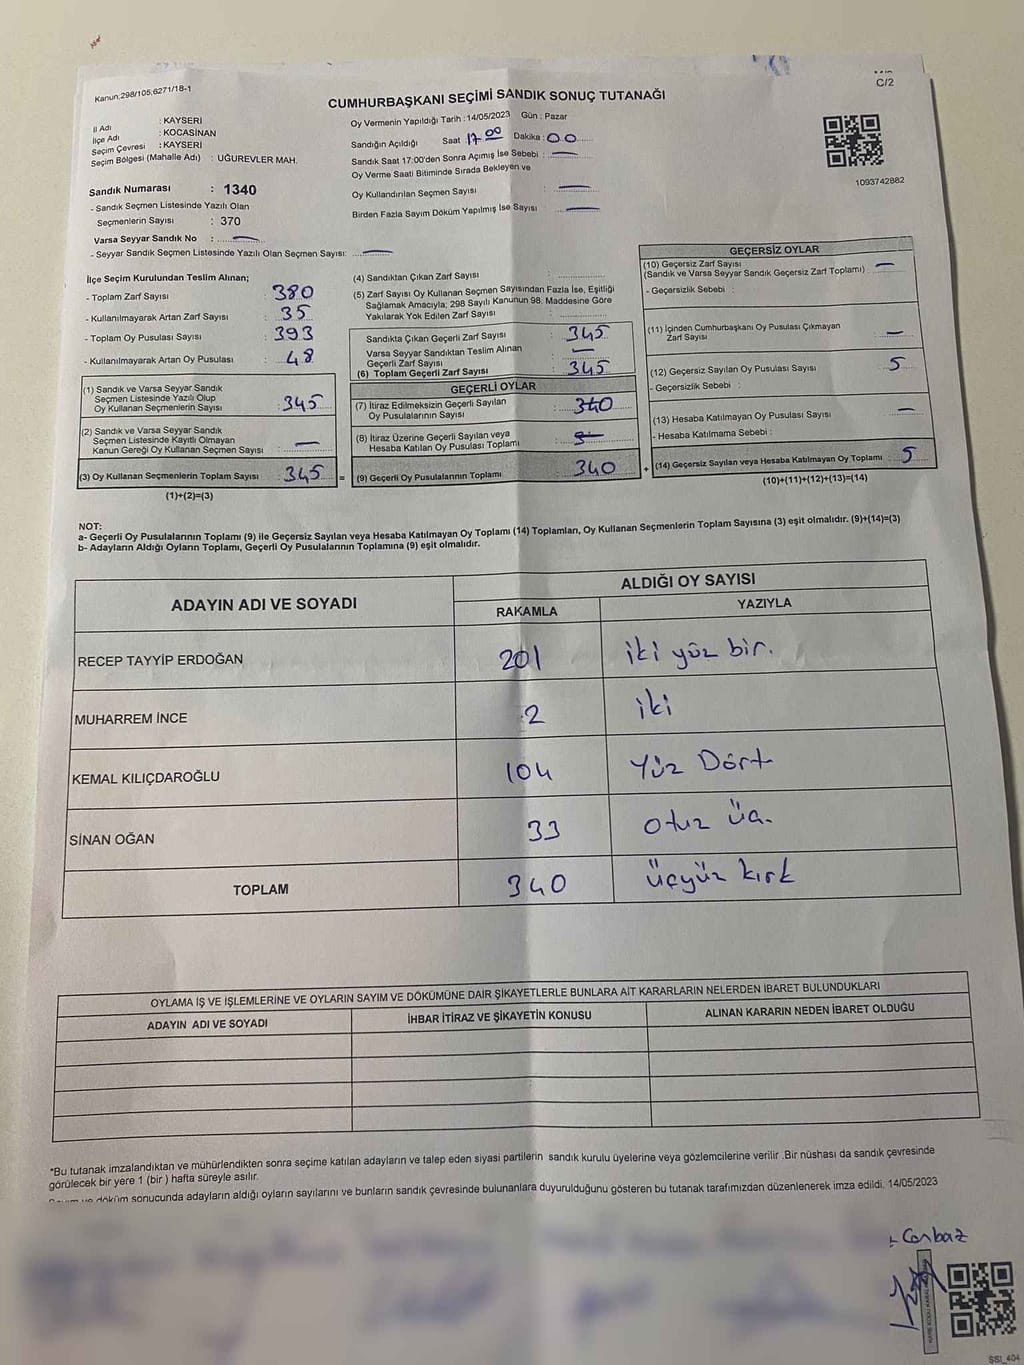 Kanun;298/105,6271/18-1
C/2
CUMHURBAŞKANI SEÇİMİ SANDIK SONUÇ TUTANAĞI
İl Adı : KAYSERİ
İlçe Adı : KOCASİNAN
Seçim Çevresi : KAYSERİ
Seçim Bölgesi (Mahalle Adı) : UĞUREVLER MAH.
Sandık Numarası : 1340
- Sandık Seçmen Listesinde Yazılı Olan
Seçmenlerin Sayısı : 370
Varsa Seyyar Sandık No : —
- Seyyar Sandık Seçmen Listesinde Yazılı Olan Seçmen Sayısı: —
Oy Vermenin Yapıldığı Tarih : 14/05/2023 Gün : Pazar
Sandığın Açıldığı Saat : 17 00 Dakika : 00
Sandık Saat 17:00'den Sonra Açımış İse Sebebi : —
Oy Verme Saati Bitiminde Sırada Bekleyen ve
Oy Kullandırılan Seçmen Sayısı : —
Birden Fazla Sayım Döküm Yapılmış İse Sayısı : —
1093742882
İlçe Seçim Kurulundan Teslim Alınan;
- Toplam Zarf Sayısı : 380
- Kullanılmayarak Artan Zarf Sayısı : 35
- Toplam Oy Pusulası Sayısı : 393
- Kullanılmayarak Artan Oy Pusulası : 48
(1) Sandık ve Varsa Seyyar Sandık
Seçmen Listesinde Yazılı Olup
Oy Kullanan Seçmenlerin Sayısı : 345
(2) Sandık ve Varsa Seyyar Sandık
Seçmen Listesinde Kayıtlı Olmayan
Kanun Gereği Oy Kullanan Seçmen Sayısı : —
(3) Oy Kullanan Seçmenlerin Toplam Sayısı : 345 =
(1)+(2)=(3)
(4) Sandıktan Çıkan Zarf Sayısı :
(5) Zarf Sayısı Oy Kullanan Seçmen Sayısından Fazla İse, Eşitliği
Sağlamak Amacıyla; 298 Sayılı Kanunun 98. Maddesine Göre
Yakılarak Yok Edilen Zarf Sayısı :
Sandıkta Çıkan Geçerli Zarf Sayısı : 345
Varsa Seyyar Sandıktan Teslim Alınan
Geçerli Zarf Sayısı : —
(6) Toplam Geçerli Zarf Sayısı : 345
GEÇERLİ OYLAR
(7) İtiraz Edilmeksizin Geçerli Sayılan
Oy Pusulalarının Sayısı : 340
(8) İtiraz Üzerine Geçerli Sayılan veya
Hesaba Katılan Oy Pusulası Toplamı :
(9) Geçerli Oy Pusulalarının Toplamı : 340 +
GEÇERSİZ OYLAR
(10) Geçersiz Zarf Sayısı
(Sandık ve Varsa Seyyar Sandık Geçersiz Zarf Toplamı) : —
- Geçersizlik Sebebi :
(11) İçinden Cumhurbaşkanı Oy Pusulası Çıkmayan
Zarf Sayısı : —
(12) Geçersiz Sayılan Oy Pusulası Sayısı : 5
- Geçersizlik Sebebi :
(13) Hesaba Katılmayan Oy Pusulası Sayısı : —
- Hesaba Katılmama Sebebi :
(14) Geçersiz Sayılan veya Hesaba Katılmayan Oy Toplamı : 5
(10)+(11)+(12)+(13)=(14)
NOT:
a- Geçerli Oy Pusulalarının Toplamı (9) ile Geçersiz Sayılan veya Hesaba Katılmayan Oy Toplamı (14) Toplamları, Oy Kullanan Seçmenlerin Toplam Sayısına (3) eşit olmalıdır. (9)+(14)=(3)
b- Adayların Aldığı Oyların Toplamı, Geçerli Oy Pusulalarının Toplamına (9) eşit olmalıdır.
ADAYIN ADI VE SOYADI ALDIĞI OY SAYISI
RAKAMLA YAZIYLA
RECEP TAYYİP ERDOĞAN 201 iki yüz bir.
MUHARREM İNCE 2 iki
KEMAL KILIÇDAROĞLU 104 Yüz Dört
SİNAN OĞAN 33 otuz üç.
TOPLAM 340 üçyüz kırk
OYLAMA İŞ VE İŞLEMLERİNE VE OYLARIN SAYIM VE DÖKÜMÜNE DAİR ŞİKAYETLERLE BUNLARA AİT KARARLARIN NELERDEN İBARET BULUNDUKLARI
ADAYIN ADI VE SOYADI İHBAR İTİRAZ VE ŞİKAYETİN KONUSU ALINAN KARARIN NEDEN İBARET OLDUĞU
*Bu tutanak imzalandıktan ve mühürlendikten sonra seçime katılan adayların ve talep eden siyasi partilerin sandık kurulu üyelerine veya gözlemcilerine verilir .Bir nüshası da sandık çevresinde
görülecek bir yere 1 (bir ) hafta süreyle asılır.
döküm sonucunda adayların aldığı oyların sayılarını ve bunların sandık çevresinde bulunanlara duyurulduğunu gösteren bu tutanak tarafımızdan düzenlenerek imza edildi. 14/05/2023
Canbaz
SSI_404